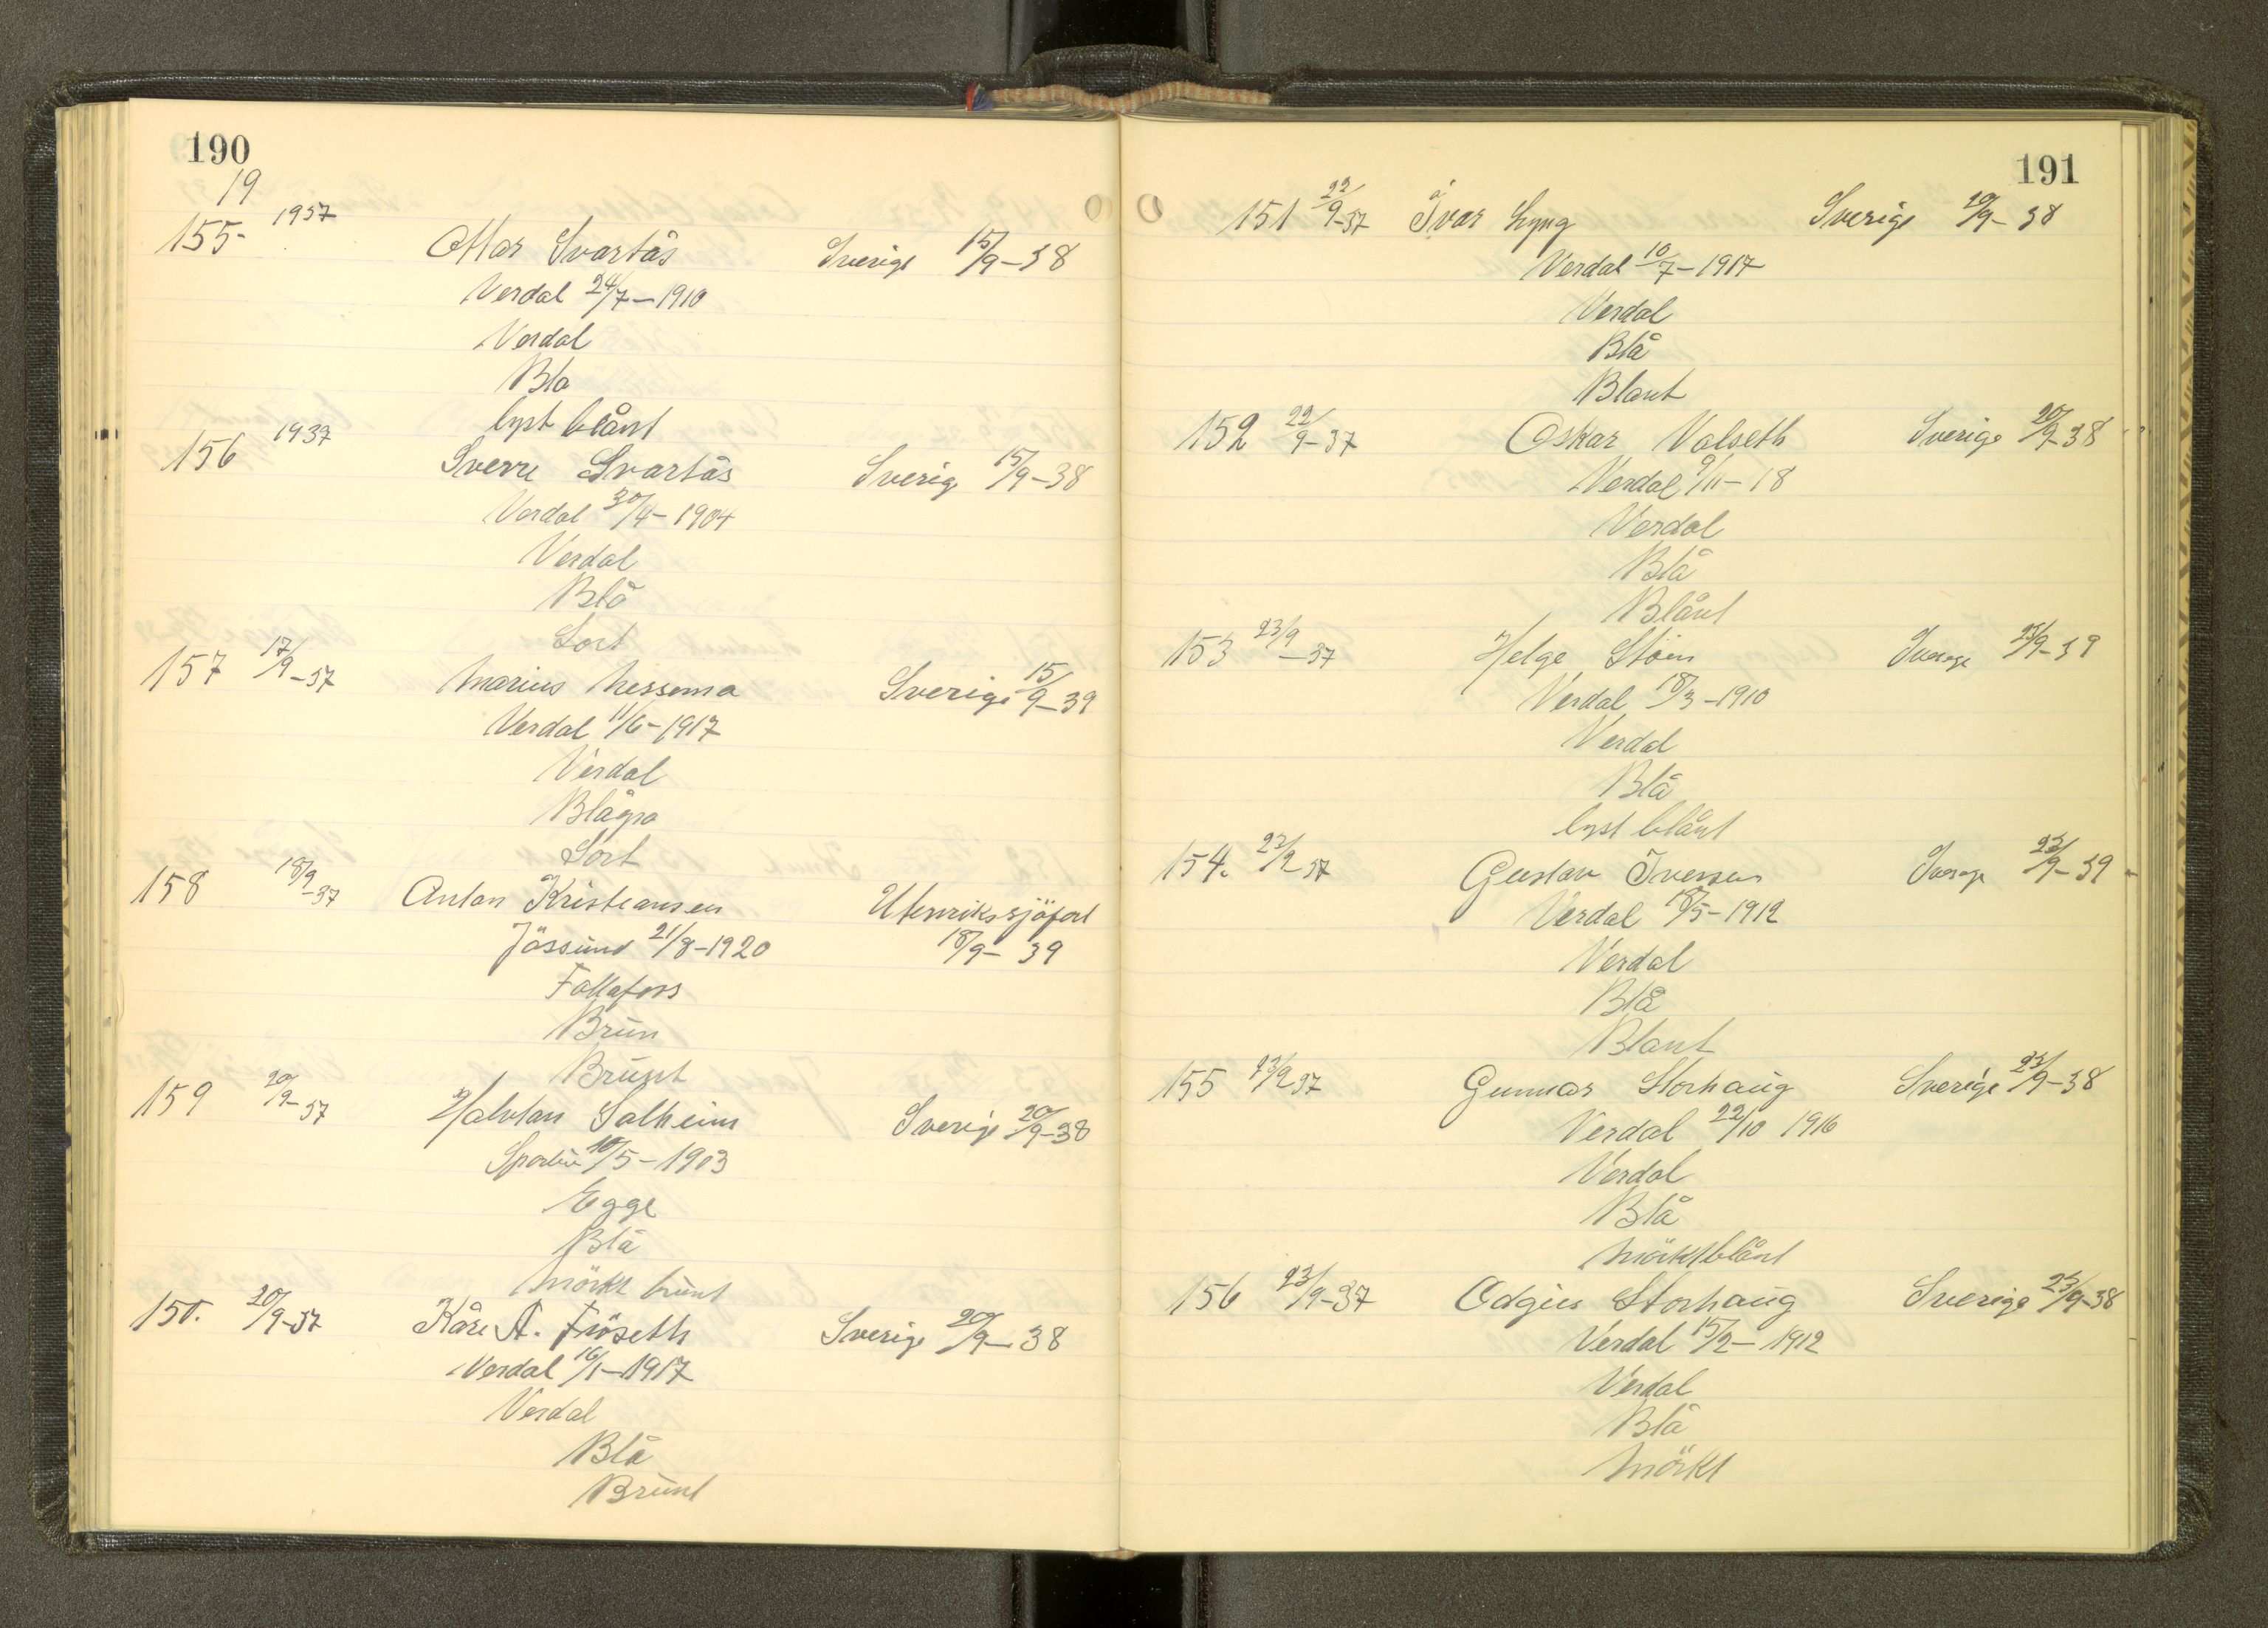 190
19
155- 1937 Ottar Svartås Sverige 15/9-38
Verdal 24/7-1910
Verdal
Bla
lyst blånt
156 1937 Sverre Svartås Sverig 15/9-38
Verdal 30/4-1904
Verdal
Blå
Sort
157 17/9-37 Marius Nessemo Sverige 15/9-39
Verdal 11/6-1917
Verdal
Blågra
Sort
158 18/9-37 Anton Kristiansen Utenrikssjöfart
Jössund 21/8-1920 18/9-39
Follafoss
Brun
Brunt
159 20/9-37 Halvtan Solheim Sverige 20/9-38
Sparbu 10/5-1903
Egge
Blå
Mörkt brunt
150. 20/9-37 Kåre A. Fröseth Sverige 20/9-38
Verdal 16/1-1917
Verdal
Blå
Brunt
191
151 22/9-37 Ivar Lyng Sverige 20/9-38
Verdal 10/7-1917
Verdal
Blå
Blant
152 22/9-37 Oskar Valseth Sverige 20/9-38
Verdal 9/11-18
Verdal
Blå
Blånt
153 23/9-37 Helge Stöen Sverige 23/9-39
Verdal 18/3-1910
Verdal
Blå
lyst blånt
154. 22/9-37 Gustav Iversen Sverige 23/9-39
Verdal 18/5-1912
Verdal
Blå
Blant
155 23/9 37 Gunnar Storhaug Sverige 23/9-38
Verdal 22/10 1916
Verdal
Blå
Mörktblånt
156 23/9-37 Odgeir Storhaug Sverige 23/9-38
Verdal 15/2-1912
Verdal
Blå
Mörkt